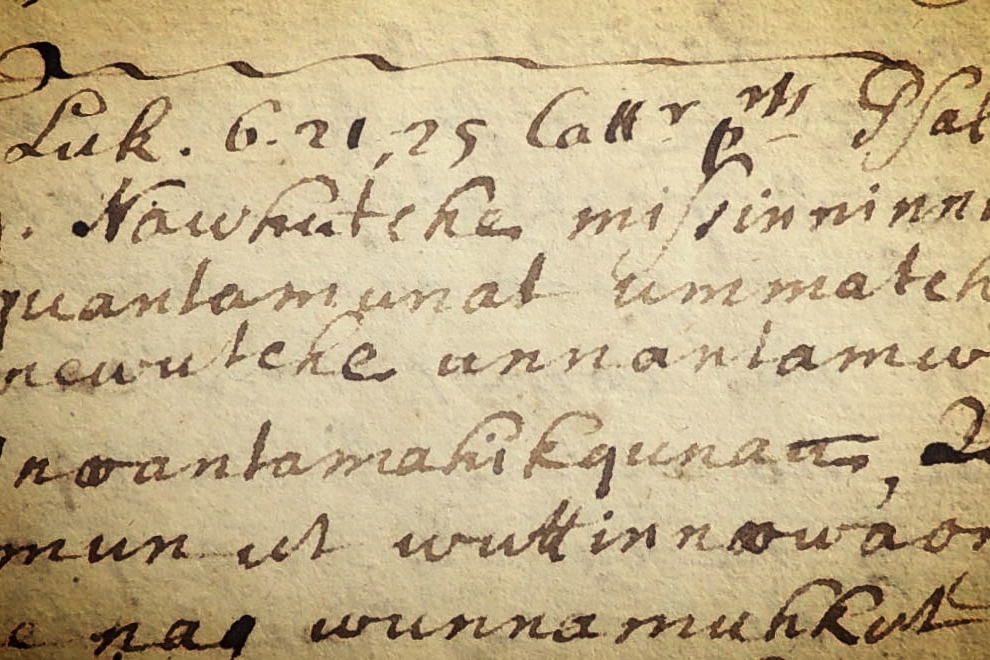 Luk. 6. 21, 25 Psal
Nawhutche missinninn
quantamunat ummatch
newutche unnantamw
nꝏantamahikqunat,
mun ut wuttinnꝏwaon
e nag wunnamuhkut